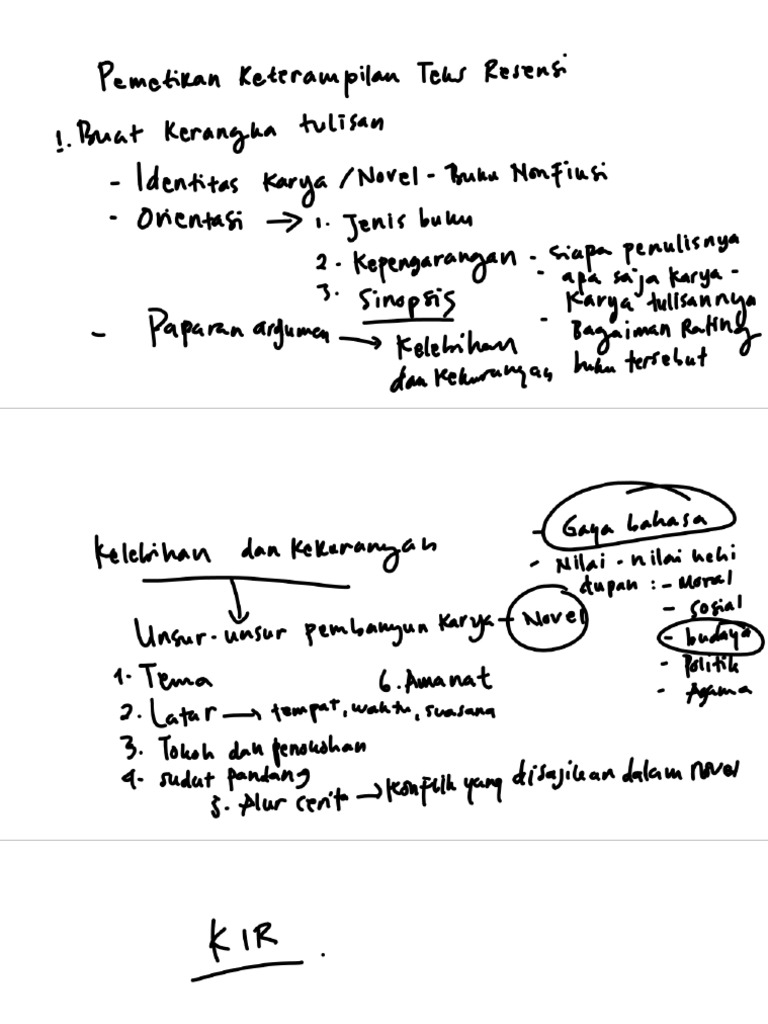 Pemetikan Keterampilan Teks Resensi
1. Buat Kerangka tulisan
- Identitas Karya / Novel - Buku Nonfiksi
- Orientasi → 1. Jenis buku
2. Kepengarangan - siapa penulisnya
- apa saja karya -
Karya tulisannya
3. Sinopsis
- Bagaiman Rating
buku tersebut
- Paparan argumen → Kelebihan
dan Kekurangan
Kelebihan dan Kekurangan
Unsur-unsur pembangun Karya - Novel
1. Tema
2. Latar → tempat, waktu, suasana
3. Tokoh dan penokohan
4. sudut pandang
5. Alur cerita → Konflik yang disajikan dalam novel
6. Amanat
- Gaya bahasa
- Nilai - nilai kehi
dupan : - Moral
- Sosial
- budaya
- Politik
- Agama
KIR.